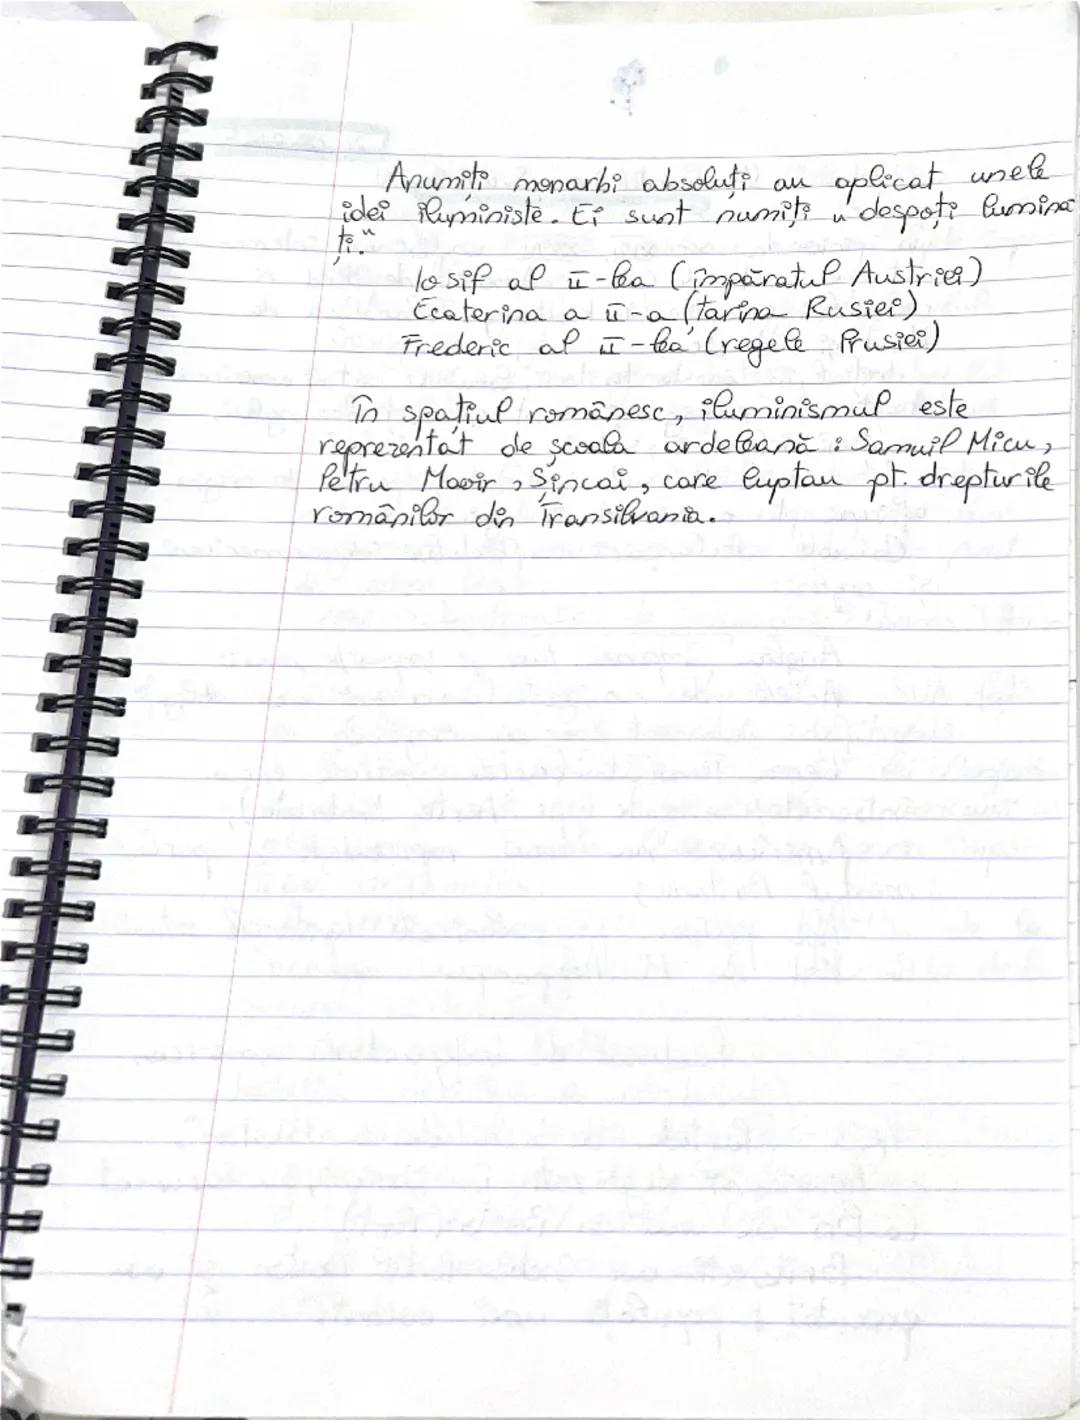 Anumiți monarhi absoluți au aplicat unele
idei iluministe. Ei sunt numiți „despoți lumina
ți."
Iosif al II-lea (împăratul Austriei)
Ecaterina a II-a (țarina Rusiei)
Frederic al II-lea (regele Prusiei)
În spațiul românesc, iluminismul este
reprezentat de școala ardeleană : Samuil Micu,
Petru Maoir, Șincai, care luptau pt. drepturile
românilor din Transilvania.